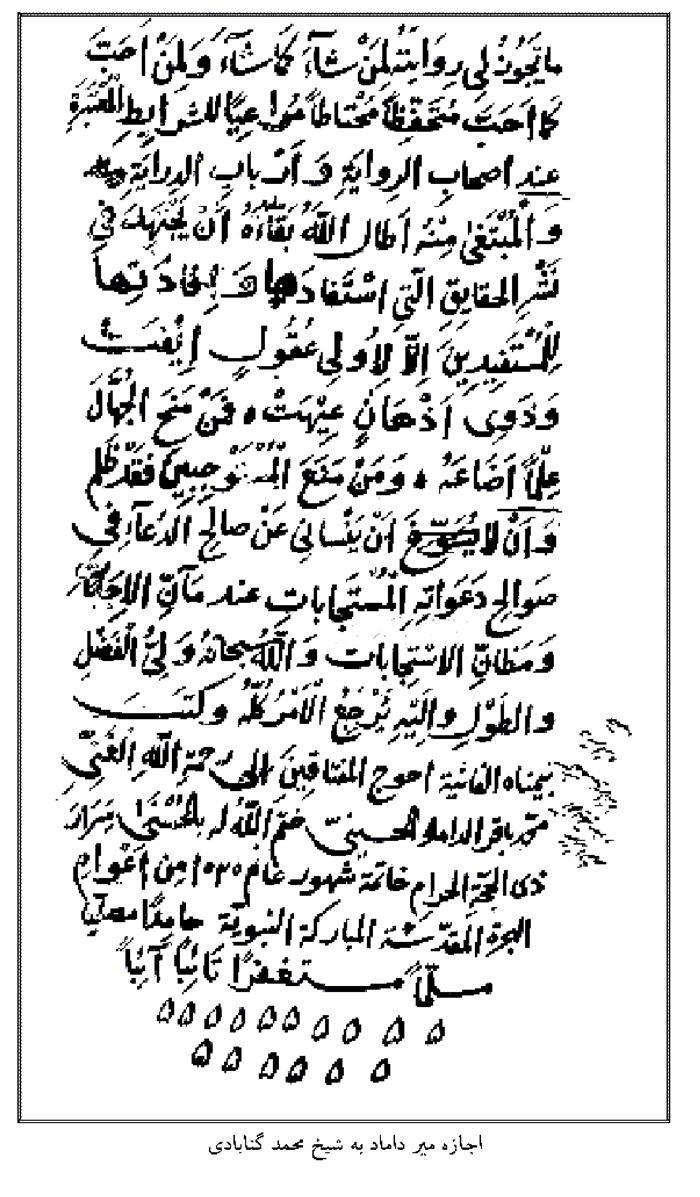 ما تَجُوزُ لي رِوايَتُهُ لِمَنْ شآءَ كَما شاءَ، وَ لِمَنْ اَحَبَّ
كما اَحَبَّ مُتَحَفِّظاً مُحْتاطاً مُراعِياً للشرايطِ المُعْتَبَرَةِ
عند اصحابِ الروايَةِ وَ اَرْبابِ الدِرايَةِ
وَ الْمُبْتَغىٰ مِنْهُ اَطال اللّٰهُ بَقاءَهُ اَنْ يَجْتَهِدَ في
نَشْرِ الحقايقِ الّتي اسْتَفادَها وَ اِفادَتِها
لِلْمُسْتَفِيدِينَ اِلّا لِاُولي عُقُولٍ اِيْفَتْ
وَ ذَوِى اَذْهانٍ عِيْهَتْ ، فَمَنْ مَنَحَ الجُهّالَ
عِلْماً اَضاعَهُ ، وَ مَنْ مَنَعَ الْمُسْتَوْجِبِينَ فَقَدْ ظَلَم
وَ اَنْ لا اَنْ يَنْساني عَنْ صالِحِ الدُعآءِ في
صَوالِحِ دَعَواتِهِ المُسْتَجاباتِ عند مَآنِّ الاِجاباتِ
وَ مَظانِّ الاسْتِجاباتِ وَ اللّٰهُ سُبحانَهُ وَليُّ الْفَضْلِ
وَ الطَوْلِ وَ اِلَيْهِ يُرْجَعُ الْاَمْرُ كُلُّهُ وَ كَتَبَ
بيمناه الفانية احوج المفتاقِينَ الى رحمةِ اللّٰهِ الغَنِيِّ
محمد باقر الداماد الحسينيّ ختم اللّٰهُ له بالحُسْنىٰ
ذى الحجّةِ الحرام خاتمة شهور عام ١٠٣٥ مِن اَعْوامِ
الهجرة المقدّسة المباركة النبويّة حامداً مصلّياً
مسلّماً مستغفراً تائباً آئباً
۵ ۵ ۵ ۵ ۵ ۵ ۵ ۵ ۵ ۵
۵ ۵ ۵ ۵ ۵ ۵
اجازه میر داماد به شیخ محمد گنابادی